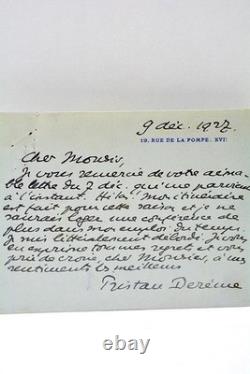 9 déc. 1927
19, RUE DE LA POMPE. XVI:
Cher Monsieur,
Je vous remercie de votre aima-
ble lettre du 7 déc. qui me parvient
à l'instant. Hélas! mon itinéraire
est fait pour cette saison et je ne
saurais loger une conférence de
plus dans mon emploi du temps.
Je suis littéralement débordé. Je vous
en exprime tous mes regrets et vous
prie de croire, cher Monsieur, à mes
sentiments les meilleurs
Tristan Derème
ebay